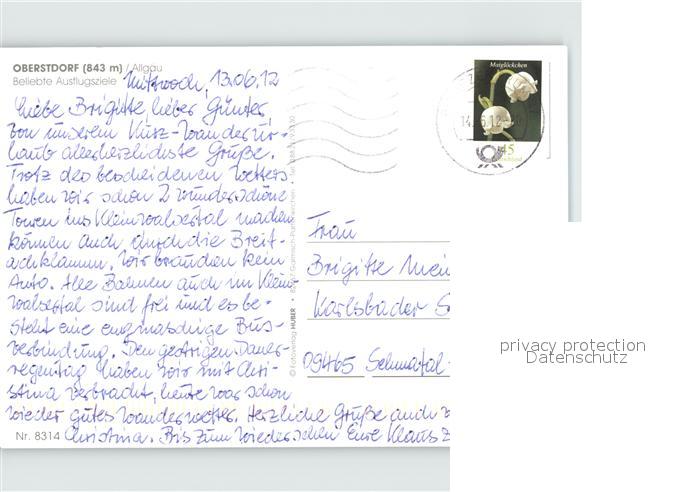 OBERSTDORF (843 m) / Allgäu
Beliebte Ausflugsziele
Mittwoch, 13.06.12
Liebe Brigitte, lieber Günter,
von unserem Kurz-Wanderur-
laub allerherzlichste Grüße.
Trotz des bescheidenen Wetters
haben wir schon 2 wunderschöne
Touren ins Kleinwalsertal machen
können auch durch die Breit-
achklamm. Wir brauchen kein
Auto. Alle Bahnen auch im Klein-
walsertal sind frei und es be-
steht eine engmaschige Bus-
verbindung. Den gestrigen Dauer-
regentag haben wir mit Chri-
stina verbracht, heute war schon
wieder gutes Wanderwetter. Herzliche Grüße auch v
Christina. Bis zum Wiedersehen Eure Klaus
Nr. 8314
© Fotoverlag HUBER
Maiglöckchen
45
Deutschland
Frau
Brigitte
Karlsbader S
09465 Sehmatal-
privacy protection
Datenschutz